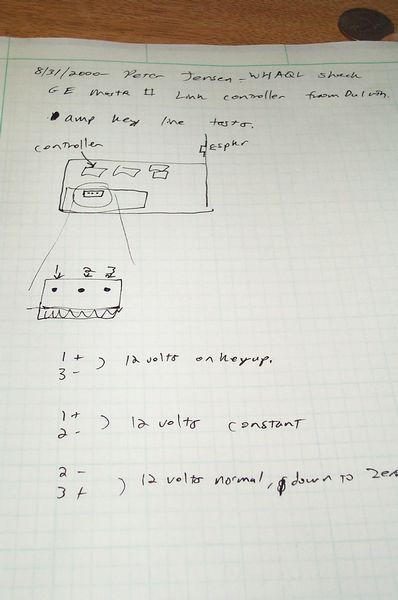 8/31/2000- Peter Jensen - WHAQL shack
GE Mastr II Link controller from Duluth.
amp key line tests.
controller
espkr
1 2 3
1 +
3 -
) 12 volts on keyup.
1 +
2 -
) 12 volts constant
2 -
3 +
) 12 volts normal, down to zero